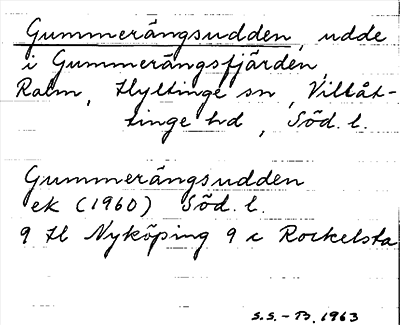 Gummerängsudden, udde
i Gummerängsfjärden,
Ralm, Hyltinge sn, Villåt-
tinge hd, Söd. l.
Gummerängsudden
ek (1960) Söd. l.
9 H Nyköping 9 c Rockelsta
S.S. - B. 1963